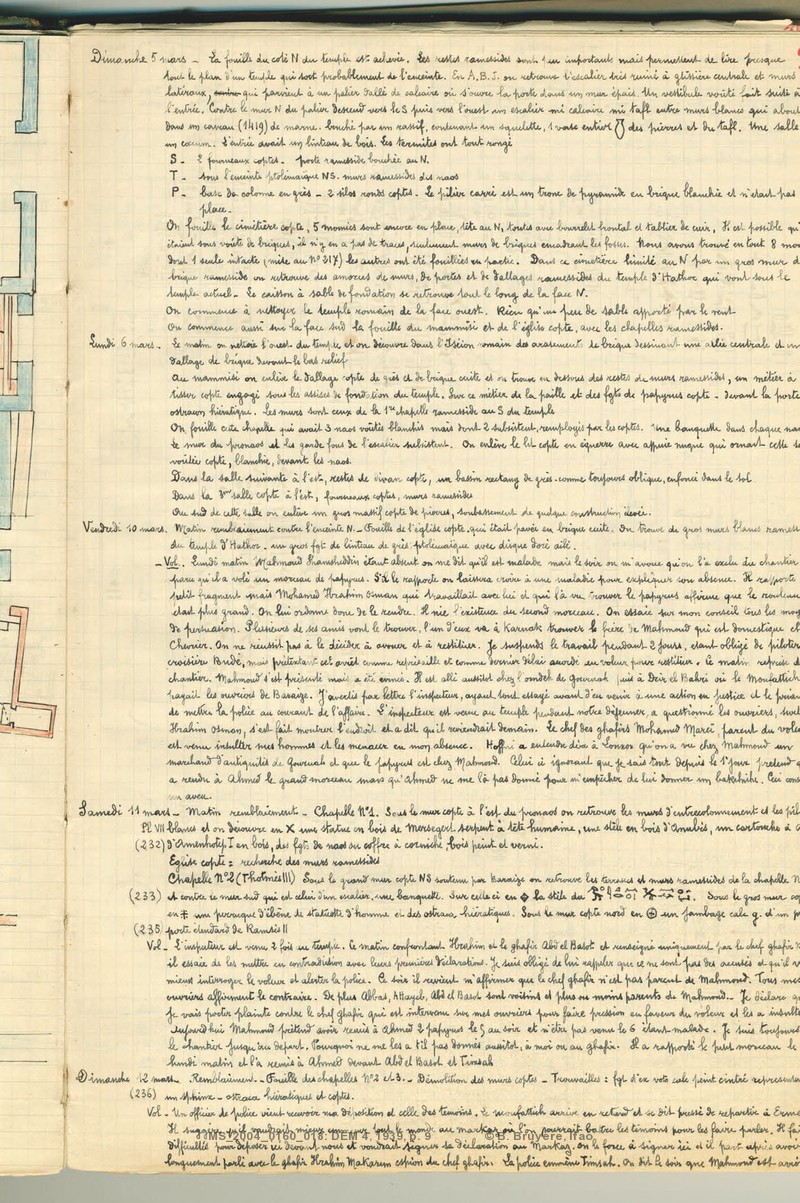 Dimanche 5 mars - La fouille du coté N du temple est achevée. Les restes ramessides sont peu importants mais permettent de lire presque
tout le plan d'un temple qui sort probablement de l'enceinte. En A.B.J. on retrouve l'escalier très ruiné à glissière centrale et murs
latéraux, qui parvient à un palier dallé de calcaire où s'ouvre la porte dans un mur épais. Un vestibule voûté fait suite à
l'entrée. Contre le mur N du palier descend vers le S puis vers l'ouest un escalier mi calcaire mi tafl entre murs blancs qui about
dans un caveau (1419) de marne. bouché par un massif, contenant un squelette, 1 vase entier des pierres et du tafl. Une salle
un coeurn. L'entrée avait un linteau de bois. Les termites ont tout rongé
S - 2 fourneaux coptes. porte ramesside bouchée au N.
T - sous l'enceinte ptolémaïque NS. murs ramessides des naos
P - base de colonne en grès - 2 silos ronds coptes. Le pilier carré est un tronc de pyramide en brique blanchie et n'était pas
place.
On fouille le cimetière copte, 5 momies sont encore en place, tête au N, toutes avec bourrelet frontal et tablier de cuir, Il est possible qu'
étaient sous voûte de briques, il n'y en a pas de traces, seulement murs de briques encadrant les fosses. Nous avons trouvé en tout 8 mom
dont 1 seule intacte (mise au N° 217) les autres ont été fouillées en partie. Dans ce cimetière limité au N par un gros mur d
brique ramesside on retrouve des amorces de murs, de portes et de dallages ramessides du temple d'Hathor qui vont sous le
temple actuel. Le caisson à sable de fondation se retrouve tout le long de la face N.
On commence à nettoyer le temple romain de la face ouest. Rien qu'un peu de sable apporté par le vent
On commence aussi sur la face sud la fouille du mammisi et de l'église copte, avec les chapelles ramessides.
Lundi 6 mars - Le matin on nettoie l'ouest du temple et on découvre dans l'Iseion romain des arasement de brique dessinant une allée centrale et un
dallage de brique devant le bas relief
Au mammisi on enlève le dallage copte de grès et de brique cuite et on trouve en dessous des restes de murs ramessides, un métier à
tisser copte engagé sous les assises de fondation du temple. Sur ce métier de la paille et des fgts de papyrus copte - devant la porte
ostracon hiératique. Les murs sont ceux de la 1re chapelle ramesside au S du temple
On fouille cette chapelle qui avait 3 naos voûtés blanchis mais dont 2 subsistent, remployés par les coptes. Une banquette dans chaque na
Le mur du pronaos et les garde fous de l'escalier subsistent. On enlève le lit copte en équerre avec appuie nuque qui ornait cette s
voûtée copte, blanchie, devant les naos.
Dans la salle suivante à l'est, restes de divan copte, un bassin rectang de grès comme toujours oblique, enfoncé dans le sol
Dans la 3me salle copte à l'est, fourneaux coptes, murs ramessides
Au sud de cette salle on enlève un gros massif copte de pierres, soubassement de quelque construction
Vendredi 10 mars. Matin remblaiement contre l'enceinte N. - Fouille de l'église copte qui était pavée en brique cuite. On trouve de gros murs blancs ramess
du temple d'Hathor. un gros fgt de linteau de grès ptolemaïque avec disque doré ailé.
- Vol. Lundi matin Mahmoud Shamsheddin étant absent on me dit qu'il est malade mais le soir on m'avoue qu'on l'a exclu du chantier
parce qu'il a volé un morceau de papyrus. S'il le rapporte on laissera croire à une maladie pour expliquer son absence. Il rapporte
petit fragment mais Mohamed Ibrahim Osman qui travaillait avec lui et qui l'a vu trouver le papyrus affirme que le rouleau
était plus grand. On lui ordonne donc de le rendre. Il nie l'existence du second morceau. On essaie sur mon conseil tous les moy
de persuasion. Plusieurs de ses amis vont le trouver, l'un d'eux va à Karnak trouver le frère de Mahmoud qui est domestique ch
Chevrier. On ne réussit pas à le décider à avouer et à restituer. Je suspends le travail pendant 2 jours, étant obligé de piloter
croisière Budé, mais prétextant cet arrêt comme représaille et comme dernier délai accordé au voleur pour restituer. Ce matin reprise d
chantier. Mahmoud s'est présenté mais a été évincé. Il est allé aussitôt chez l'omdeh de Gournah puis à Deir el Bahri où le Moufattich
payait les ouvriers de Baraize. J'avertis par lettre l'inspecteur, ayant tout essayé avant d'en venir à une action en justice et le priai
de mettre la police au courant de l'affaire. L'inspecteur est venu au temple pendant notre déjeuner, a questionné les ouvriers, surt
Ibrahim Osman, s'est fait montrer l'endroit et a dit qu'il reviendrait demain. Le chef des ghafirs Mohamed Marei, parent du voleu
est venu insulter mes hommes et les menacer en mon absence. Hoffni a entendu dire à Louxor qu'on a vu chez Mahmoud un
marchand d'antiquités de Gournah et que le papyrus est chez Mahmoud. Celui ci ignorant que je sais tout depuis le 1er jour prétend q
a rendu à Ahmed le grand morceau mais qu'Ahmed ne me l'a pas donné pour m'empêcher de lui donner un bakhchiche. Ceci cons
un aveu.
Samedi 11 mars - Matin remblaiement - Chapelle N°1. Sous le mur copte à l'est du pronaos on retrouve les murs d'entrecolonnement et les pil
Pl VII blancs et on découvre en X une statue en bois de Mersegert serpent à tête humaine, une stèle en bois d'Anubis, un cartouche à
(232) d'Amenhotep I en bois, des fgts de naos ou coffre à corniche, bois peint et verni.
Eglise copte : recherche des murs ramessides
Chapelle N°2 (Thotmès III) Sous le grand mur copte NS soutenu par Baraize on retrouve les terrasses et murs ramessides de la chapelle N
(233) et contre le mur sud qui est celui d'un escalier, une banquette. Sur celle ci en la stèle du. Sous le gros mur co
en une perruque d'ébène de statuette d'homme et des ostraca hiératiques. Sous le mur copte nord en un jambage calc g. d'un p
(235) porte étendard de Ramsès II
Vol - L'inspecteur est venu 2 fois au temple. Ce matin confrontant Ibrahim et le ghafir Abd el Basot et renseigné uniquement par le chef ghafir
il essaie de les mettre en contradiction avec leurs premières déclarations. Je suis obligé de lui rappeler que ce ne sont pas des accusés et qu'il v
mieux interroger le voleur et alerter la police. Ce soir il revient m'affirmer que le chef ghafir n'est pas parent de Mahmoud. Tous mes
ouvriers affirment le contraire. De plus Abbas, Htayeb, Abd el Basot sont voisins et plus ou moins parents de Mahmoud. - Je déclare q
Je vais porter plainte contre le chef ghafir qui est intervenu sur mes ouvriers pour faire pression en faveur du voleur et les a insult
Aujourd'hui Mahmoud prétend avoir remis à Ahmed 2 papyrus le 5 au soir et n'être pas venu le 6 étant malade. Je suis toujours
le chantier jusqu'au départ. Pourquoi ne me les a t'il pas donnés aussitôt, à moi ou au ghafir. Il a rapporté le petit morceau le
lundi matin et l'a remis à Ahmed devant Abd el Basot et Timsah
Dimanche 12 mars. Remblaiement. - Fouille des chapelles N°2 et 3. - Démolition des murs coptes - Trouvailles : fgt d'ex voto calc peint cintré représentan
(236) un sphinx - ostraca hiératiques et coptes.
Vol - Un officier de police vient recevoir ma déposition et celle des témoins. Le moufattich arrive en retard et se dit pressé de repartir à Erme
Il suggère qu'il vaudrait mieux emmener tout le monde au markaz où l'on pourrait battre les témoins pour les faire parler. Il fai
difficultés pour déposer ici devant nous et voudrait signer sa déclaration au Markaz. on le force à signer ici et il part après avoir
longuement parlé avec le ghafir Ibrahim Makarem espion du chef ghafir. La police emmène Timsah. On dit le soir que Mahmoud est arrê
MS2004_0160_018. DEM 4, 1939, p. 9 © B. Bruyère, Ifao